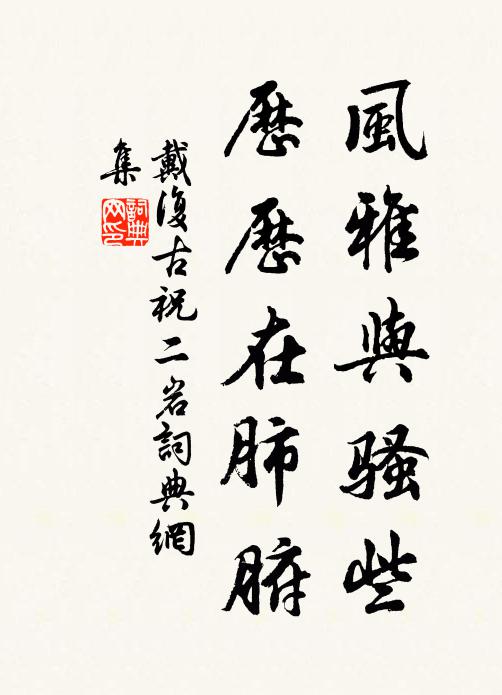 風雅與騷些
歷歷在肺腑
戴復古祝二岩詞典網
集
詞典網印